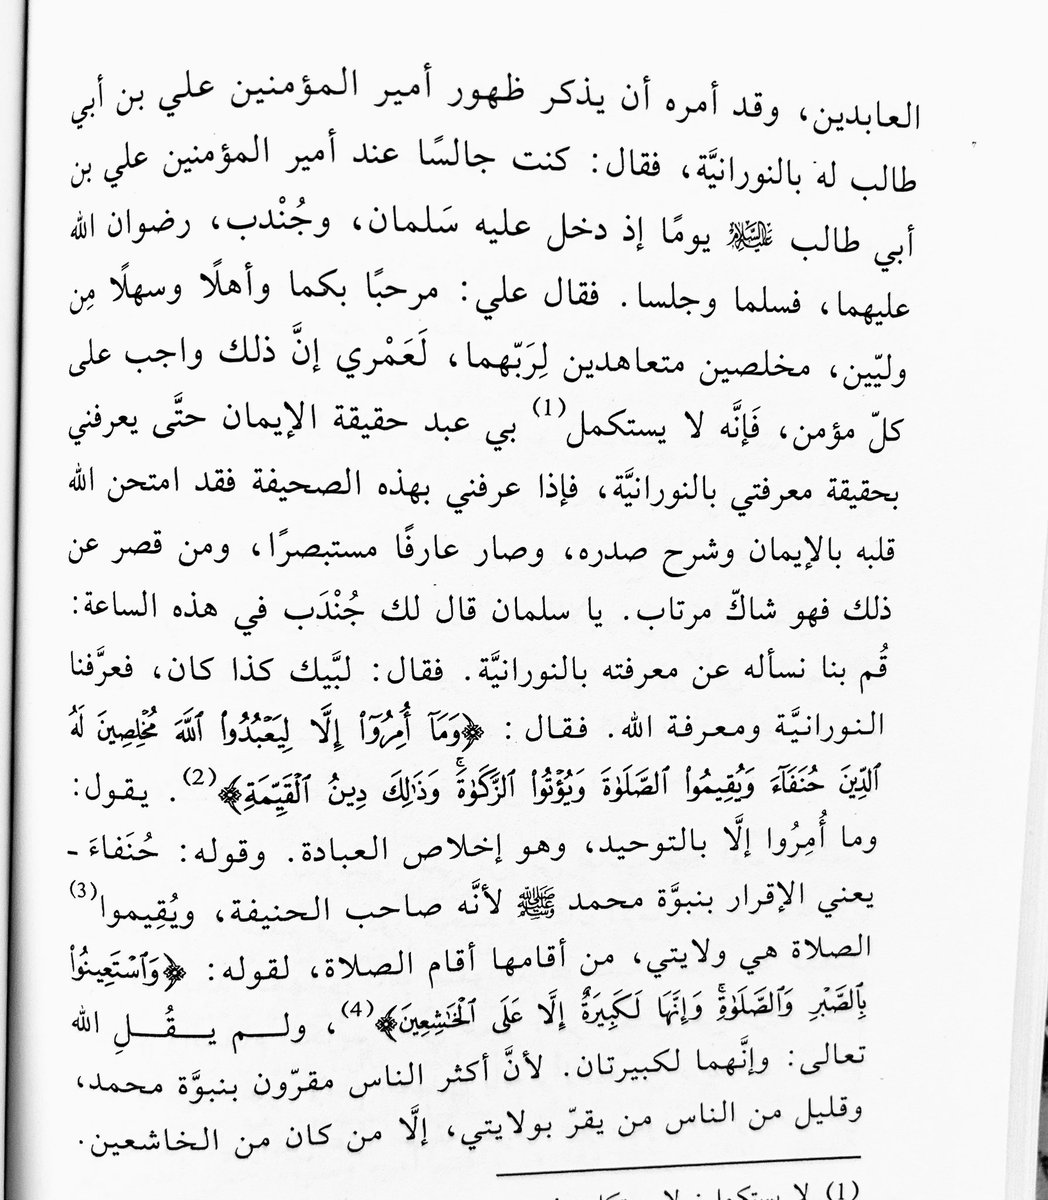 العابدين، وقد أمره أن يذكر ظهور أمير المؤمنين علي بن أبي
طالب له بالنورانيَّة، فقال: كنت جالسًا عند أمير المؤمنين علي بن
أبي طالب عليه السلام يومًا إذ دخل عليه سَلمان، وجُنْدب، رضوان الله
عليهما، فسلما وجلسا. فقال علي: مرحبًا بكما وأهلًا وسهلًا مِن
وليّين، مخلصين متعاهدين لِرَبّهما، لَعَمْري إنَّ ذلك واجب على
كلّ مؤمن، فَإنَّه لا يستكمل(1) بي عبد حقيقة الإيمان حتَّى يعرفني
بحقيقة معرفتي بالنورانيَّة، فإذا عرفني بهذه الصحيفة فقد امتحن الله
قلبه بالإيمان وشرح صدره، وصار عارفًا مستبصرًا، ومن قصر عن
ذلك فهو شاكّ مرتاب. يا سلمان قال لك جُنْدَب في هذه الساعة:
قُم بنا نسأله عن معرفته بالنورانيَّة. فقال: لبَّيك كذا كان، فعرَّفنا
النورانيَّة ومعرفة الله. فقال: ﴿وَمَآ أُمِرُوٓا۟ إِلَّا لِيَعْبُدُوا۟ ٱللَّهَ مُخْلِصِينَ لَهُ
ٱلدِّينَ حُنَفَآءَ وَيُقِيمُوا۟ ٱلصَّلَوٰةَ وَيُؤْتُوا۟ ٱلزَّكَوٰةَ ۚ وَذَٰلِكَ دِينُ ٱلْقَيِّمَةِ﴾(2). يقول:
وما أُمِرُوا إلَّا بالتوحيد، وهو إخلاص العبادة. وقوله: حُنَفاءَ -
يعني الإقرار بنبوَّة محمد ﷺ لأنَّه صاحب الحنيفة، ويُقِيموا(3)
الصلاة هي ولايتي، من أقامها أقام الصلاة، لقوله: ﴿وَٱسْتَعِينُوا۟
بِٱلصَّبْرِ وَٱلصَّلَوٰةِ ۚ وَإِنَّهَا لَكَبِيرَةٌ إِلَّا عَلَى ٱلْخَٰشِعِينَ﴾(4)، ولم يقُلِ الله
تعالى: وإنَّهما لكبيرتان. لأنَّ أكثر الناس مقرّون بنبوَّة محمد،
وقليل من الناس من يقرّ بولايتي، إلَّا من كان من الخاشعين.